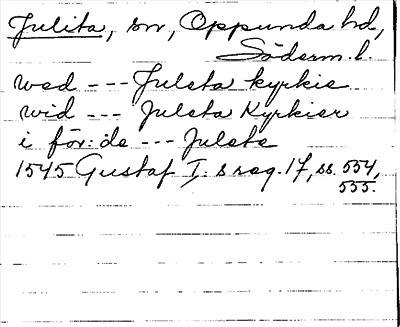 Julita, sn, Oppunda hd,
Söderm. l.
wed --- Julsta kyrkie
wid --- Julsta Kyrkier
i för: de --- Julsta
1545 Gustaf I:s reg. 17, ss. 554,
555.